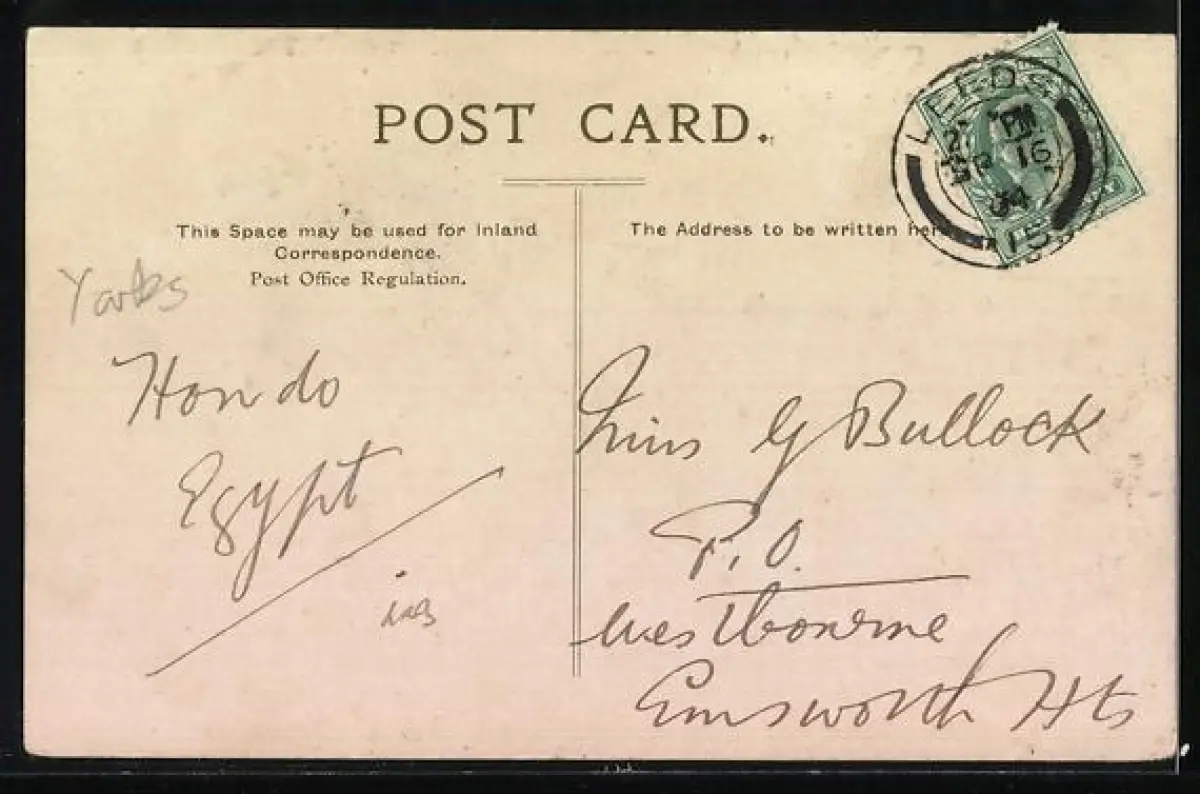 POST CARD.
This Space may be used for Inland
Correspondence.
Post Office Regulation.
The Address to be written here.
LEEDS
PM
16
04
15
Yorks
Hondo
Egypt
Miss G Bullock
P.O.
Westbourne
Emsworth Hts